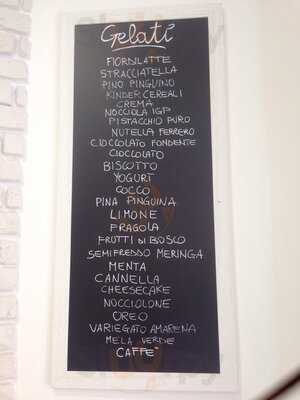 Gelati
FIORDILATTE
STRACCIATELLA
PINO PINGUINO
KINDER CEREALI
CREMA
NOCCIOLA IGP
PISTACCHIO PURO
NUTELLA FERRERO
CIOCCOLATO FONDENTE
CIOCCOLATO
BISCOTTO
YOGURT
COCCO
PINA PINGUINA
LIMONE
FRAGOLA
FRUTTI DI BOSCO
SEMIFREDDO MERINGA
MENTA
CANNELLA
CHEESECAKE
NOCCIOLONE
OREO
VARIEGATO AMARENA
MELA VERDE
CAFFE'